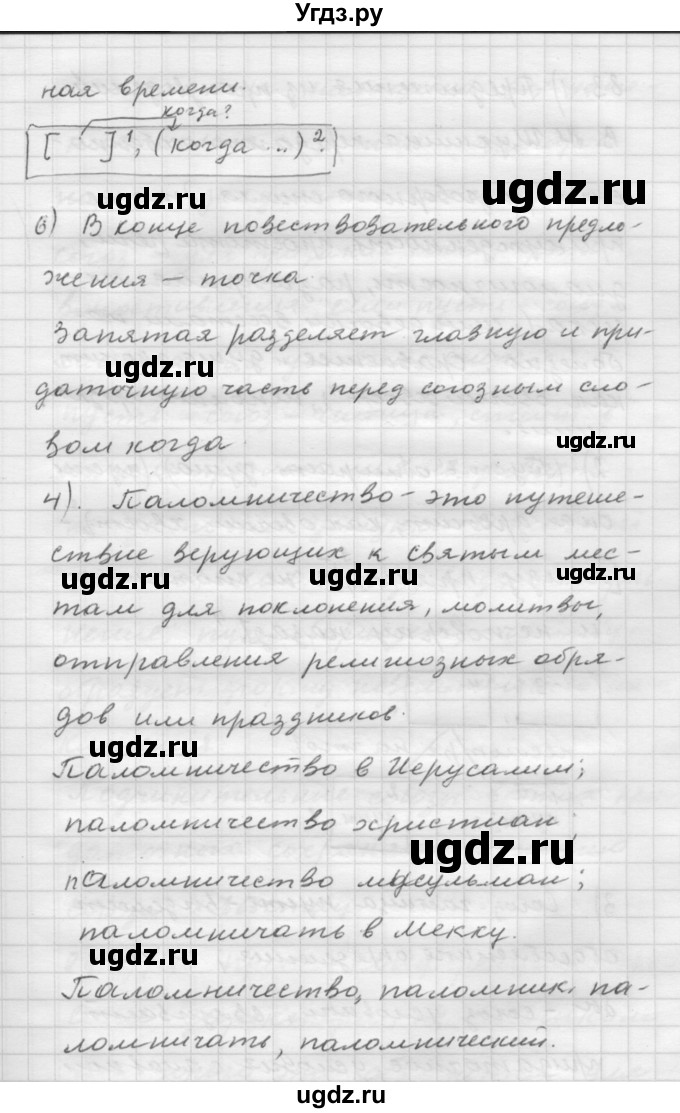 Угдз.ру
ная времени.
когда?
[ ]¹, (когда ...)².
ugdz.ru
ugdz.ru
б) В конце повествовательного предло-
жения – точка.
Запятая разделяет главную и при-
ugdz.ru
даточную часть перед союзным сло-
вом когда.
ugdz.ru
4). Паломничество – это путеше-
ствие верующих к святым мес-
ugdz.ru ugdz.ru ugdz.ru
там для поклонения, молитвы,
отправления религиозных обря-
дов или праздников.
ugdz.ru
Паломничество в Иерусалим;
паломничество христиан;
ugdz.ru
паломничество мусульман;
паломничать в Мекку.
ugdz.ru
Паломничество, паломник, па-
ломничать, паломнический.
ugdz.ru